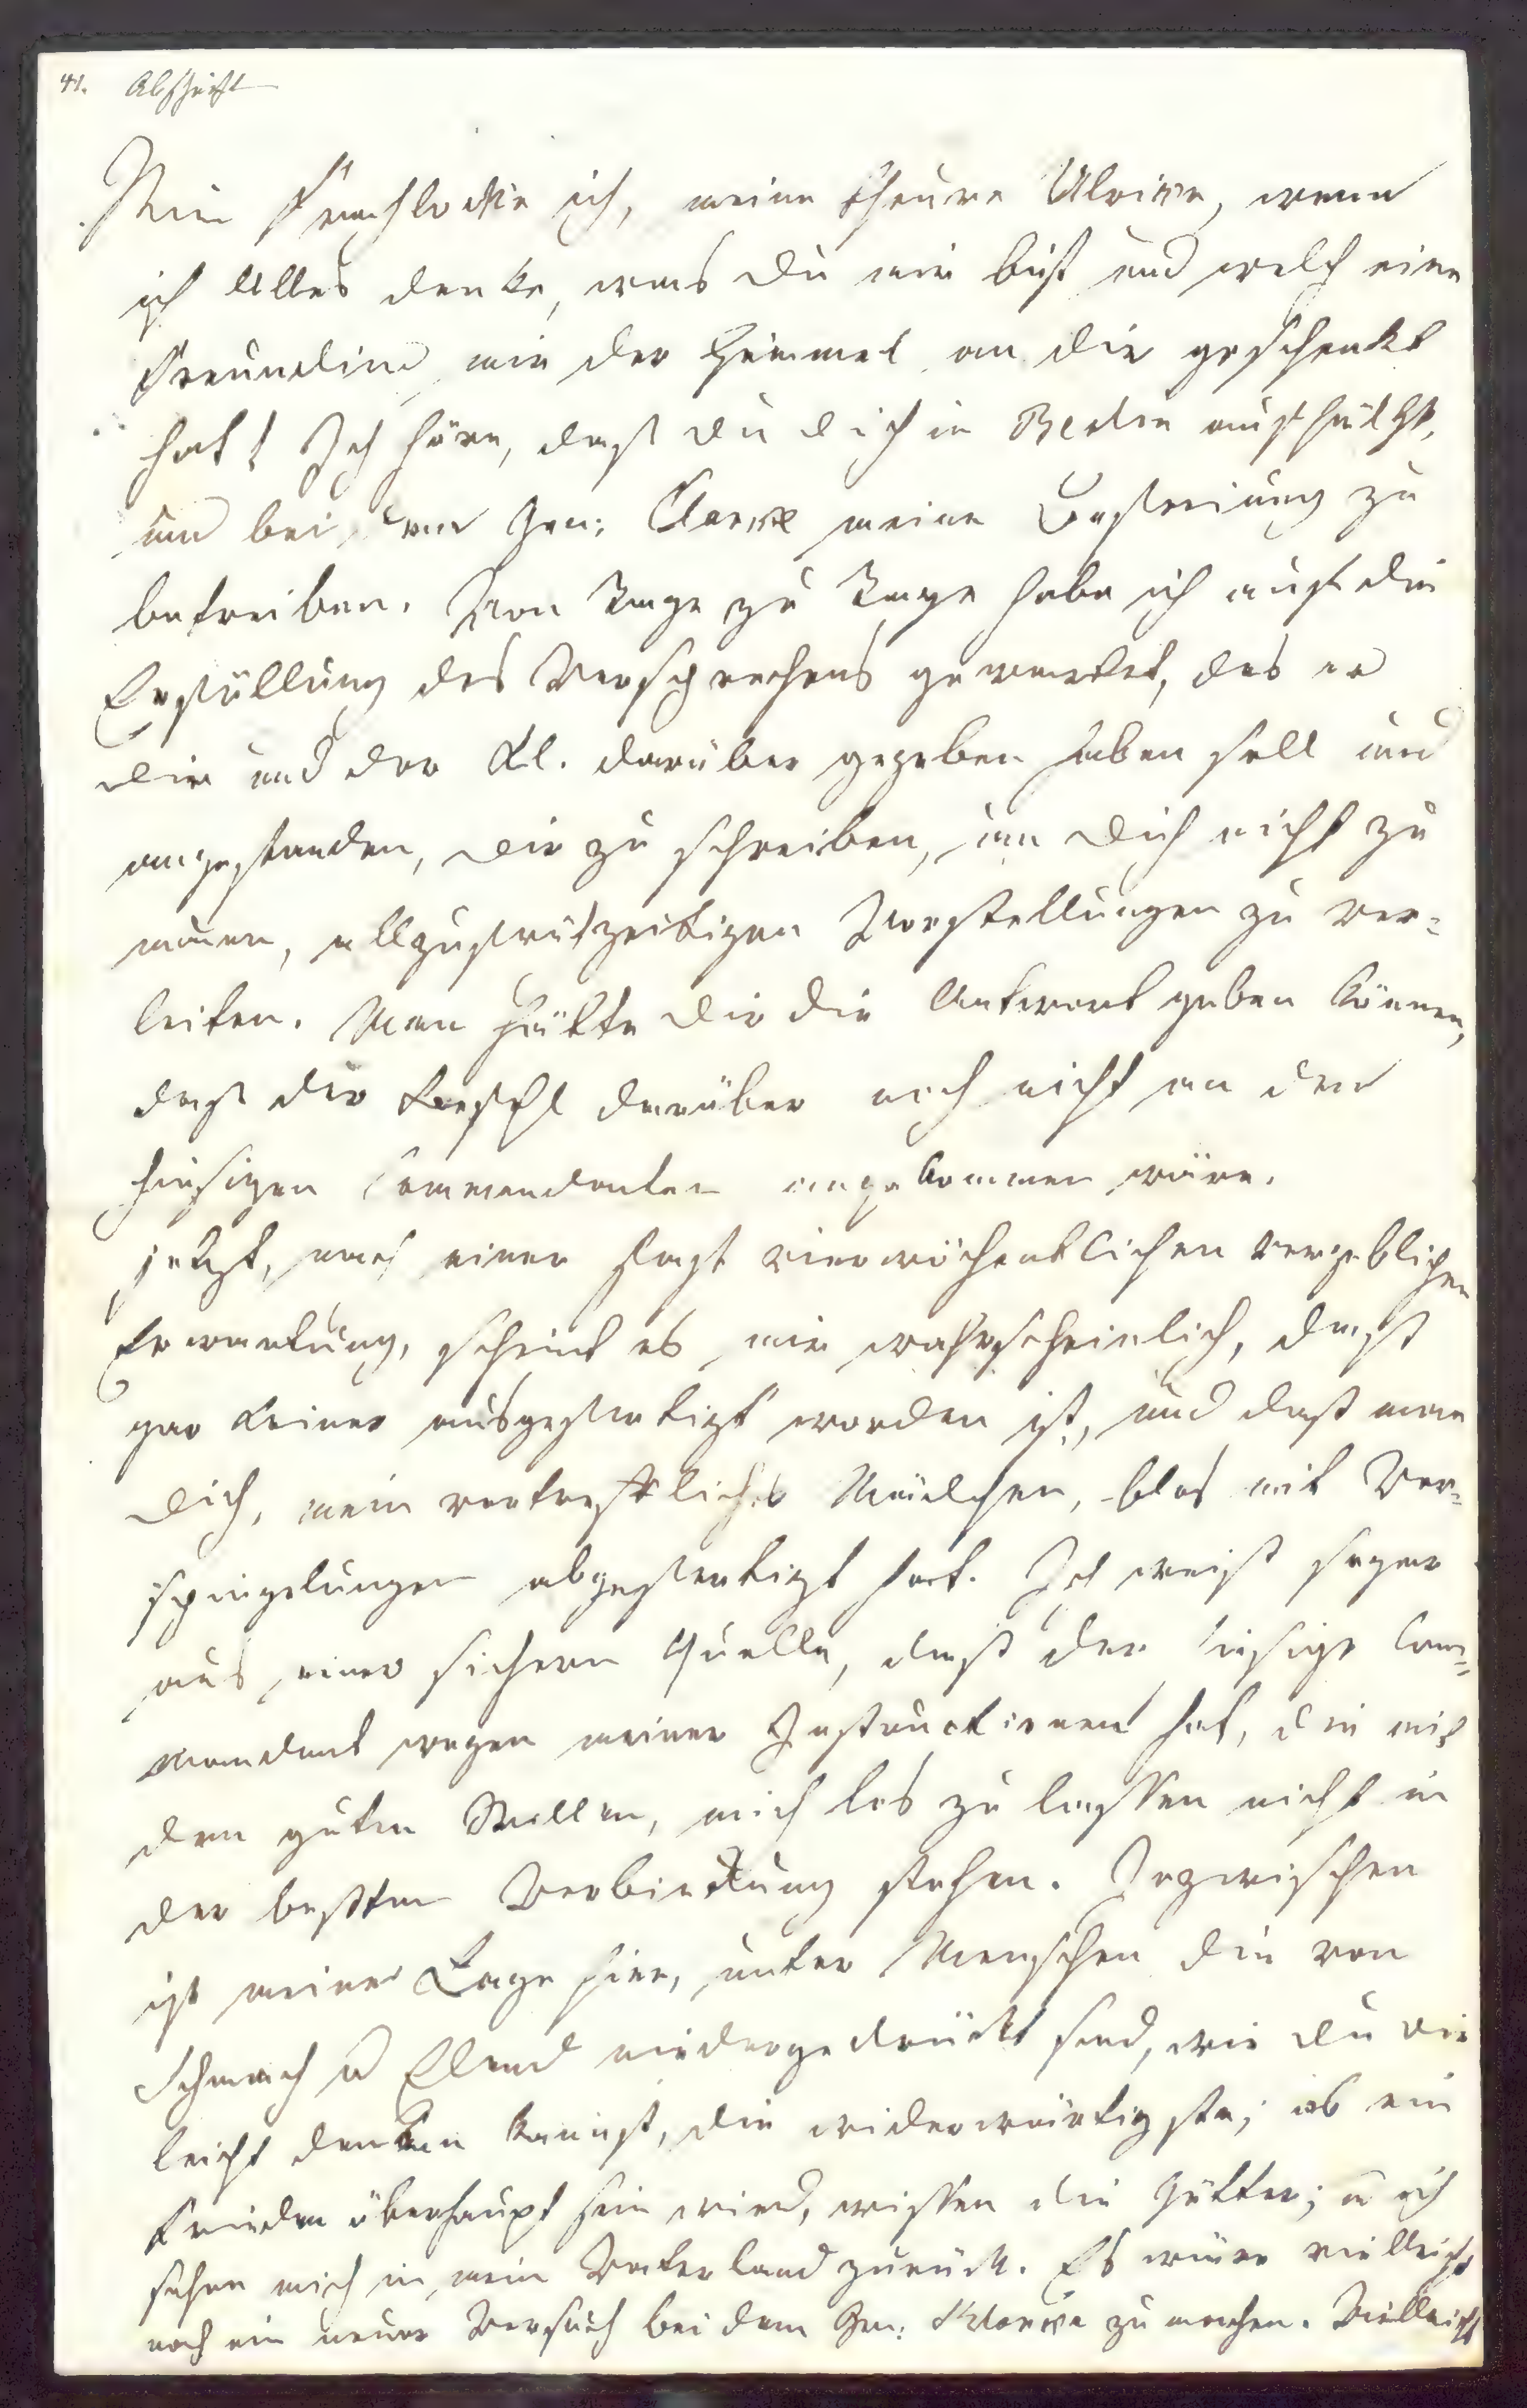 41. Abschrift
Wie frohlocke ich, meine theure Ulrike, wenn
ich Alles denke, was Du mir bist und welch eine
Freundinn mir der Himmel an dir geschenkt
hat! Ich höre, daß du dich in Berlin aufhältst,
um bei dem Gen: Clarke meine Befreiung zu
betreiben. Von Tage zu Tage habe ich auf die
Erfüllung des Versprechens gewartet, das er
dir und der Kl. darüber gegeben haben soll und
angestanden, dir zu schreiben, um dich nicht zu
neuen, allzufrühzeitigen Vorstellungen zu ver-
leiten. Man hätte dir die Antwort geben können,
daß der Befehl darüber noch nicht an den
hiesigen Commendanten angekommen wäre.
Jetzt, nach einer fast vierwöchentlichen vergeblichen
Erwartung, scheint es mir wahrscheinlich, daß
gar keiner ausgefertigt worden ist, und daß man
dich, mein vortreffliches Mädchen, blos mit Vor-
spiegelungen abgefertigt hat. Ich weiß sogar
aus einer sichern Quelle, daß der hiesige Com-
mendant wegen meiner Instructionen hat, die mit
dem guten Willen, mich los zu lassen nicht in
der besten Verbindung stehen. Inzwischen
ist meine Lage hier, unter Menschen die von
Schmach u Elend niedergedrückt sind, wie du dir
leicht denken kannst, die widerwärtigste; ob ein
Frieden überhaupt sein wird, wissen die Götter; u ich
sehne mich in mein Vaterland zurück. Es wäre vielleicht
noch ein neuer Versuch bei dem Gen: Klarke zu machen. Vielleicht